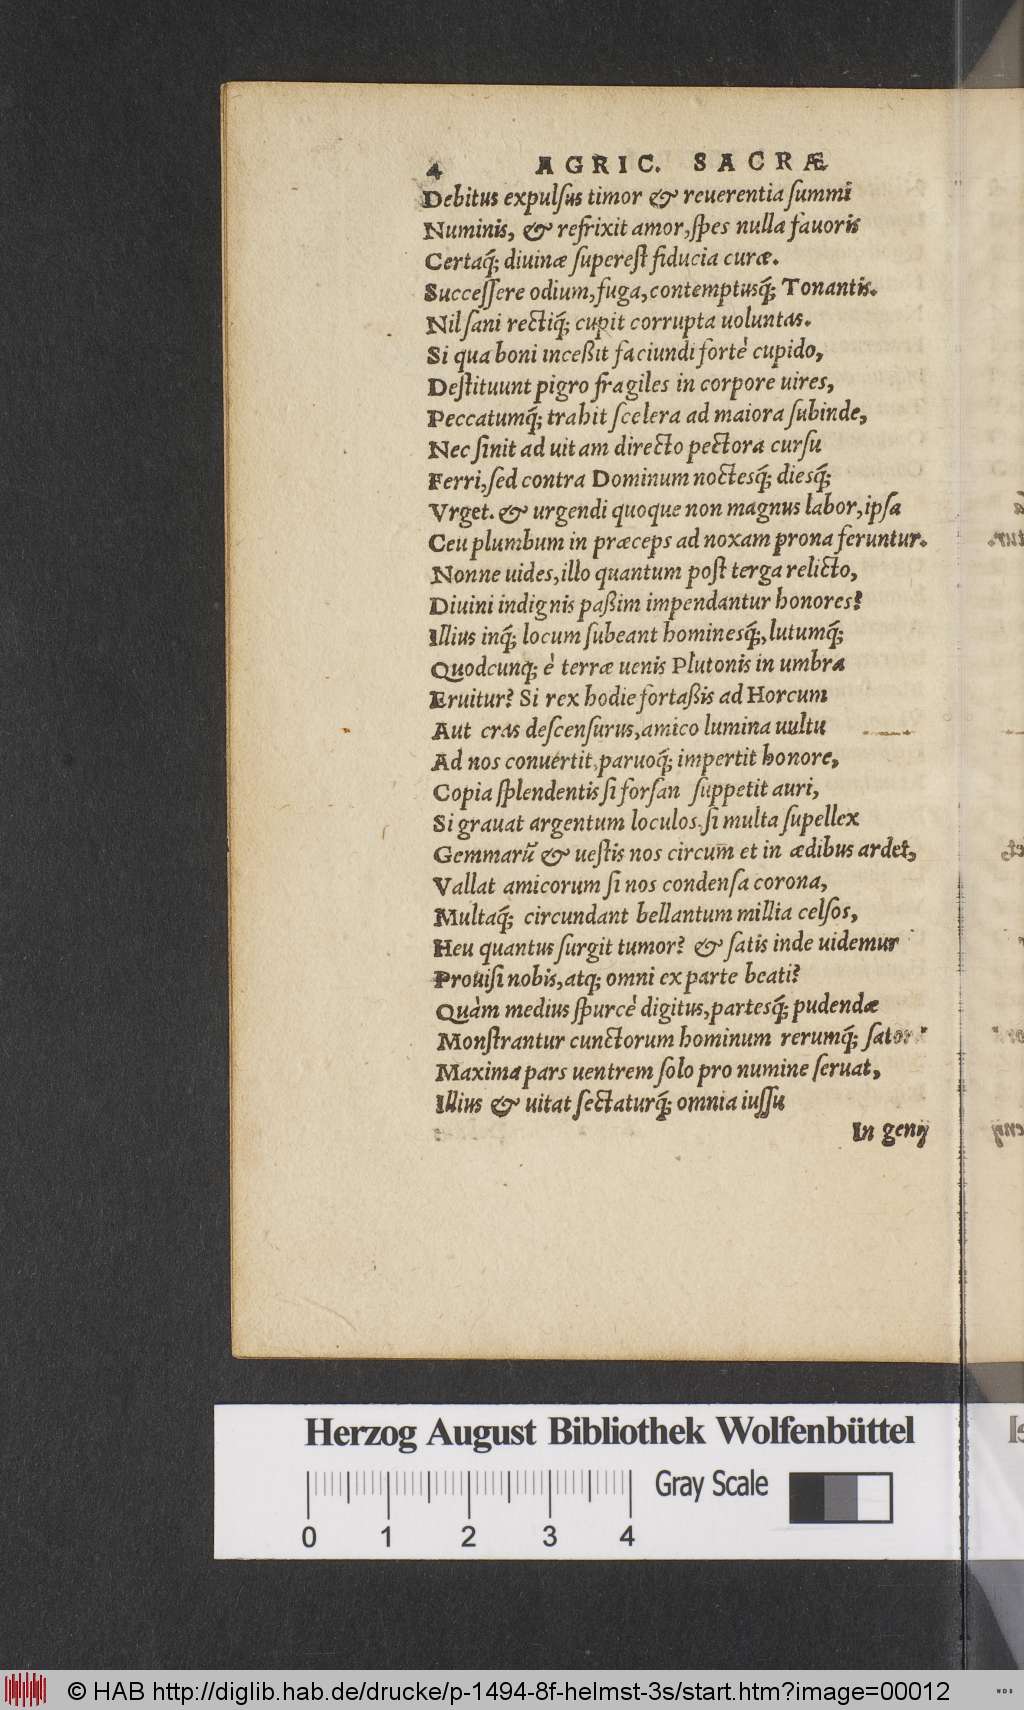 4 AGRIC. SACRÆ
Debitus expulſus timor & reuerentia ſummi
Numinis, & refrixit amor, ſpes nulla fauoris
Certaq́; diuinæ ſupereſt fiducia curæ.
Succeſſere odium, fuga, contemptusq́; Tonantis.
Nil ſani rectiq́; cupit corrupta uoluntas.
Si qua boni inceßit faciundi fortè cupido,
Deſtituunt pigro fragiles in corpore uires,
Peccatumq́; trahit ſcelera ad maiora ſubinde,
Nec ſinit ad uitam directo pectora curſu
Ferri, ſed contra Dominum noctesq́; diesq́;
Vrget. & urgendi quoque non magnus labor, ipſa
Ceu plumbum in præceps ad noxam prona feruntur.
Nonne uides, illo quantum poſt terga relicto,
Diuini indignis paßim impendantur honores?
Illius inq́; locum ſubeant hominesq́;, lutumq́;
Quodcunq; è terræ uenis Plutonis in umbra
Eruitur? Si rex hodie fortaßis ad Horcum
Aut cras deſcenſurus, amico lumina uultu
Ad nos conuertit, paruoq́; impertit honore,
Copia ſplendentis ſi forſan ſuppetit auri,
Si grauat argentum loculos. ſi multa ſupellex
Gemmarū & ueſtis nos circum et in ædibus ardet,
Vallat amicorum ſi nos condenſa corona,
Multaq́; circundant bellantum millia celſos,
Heu quantus ſurgit tumor? & ſatis inde uidemur
Prouiſi nobis, atq; omni ex parte beati?
Quàm medius ſpurcè digitus, partesq́; pudendæ
Monſtrantur cunctorum hominum rerumq́; ſator?
Maxima pars uentrem ſolo pro numine ſeruat,
Illius & uitat ſectaturq́; omnia iuſſu
In genij
Herzog August Bibliothek Wolfenbüttel
Gray Scale
0 1 2 3 4
© HAB http://diglib.hab.de/drucke/p-1494-8f-helmst-3s/start.htm?image=00012